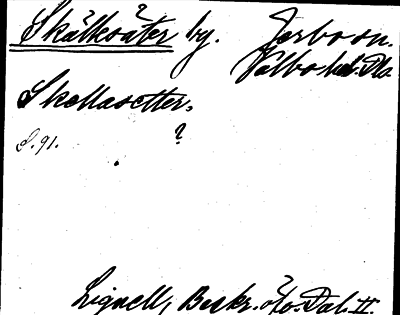 Skälksäter by. Järbo sn.
Valbo hd. Dls.
Skellasetter,
S. 91. ?
Lignell, Beskr. ö/o. Dal. II.